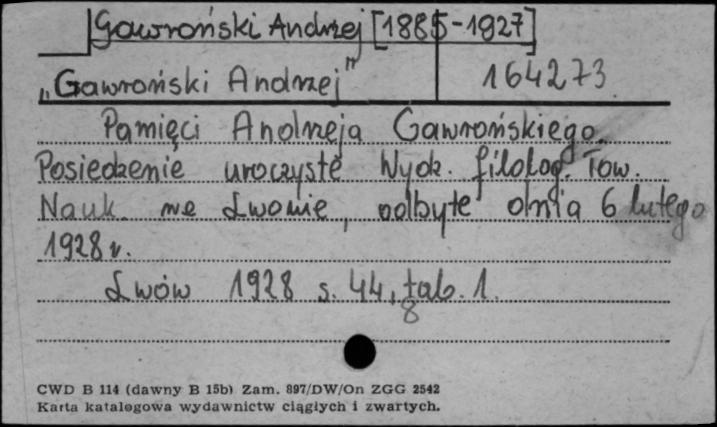 Gawroński Andrzej [1885-1927]
„Gawroński Andrzej" 164273
Pamięci Andrzeja Gawrońskiego.
Posiedzenie uroczyste Wydz. filolog. Tow.
Nauk. we Lwowie, odbyte dnia 6 lutego
1928 r.
Lwów 1928 s. 44, tab. 1.
8
CWD B 114 (dawny B 15b) Zam. 897/DW/On ZGG 2542
Karta katalogowa wydawnictw ciągłych i zwartych.